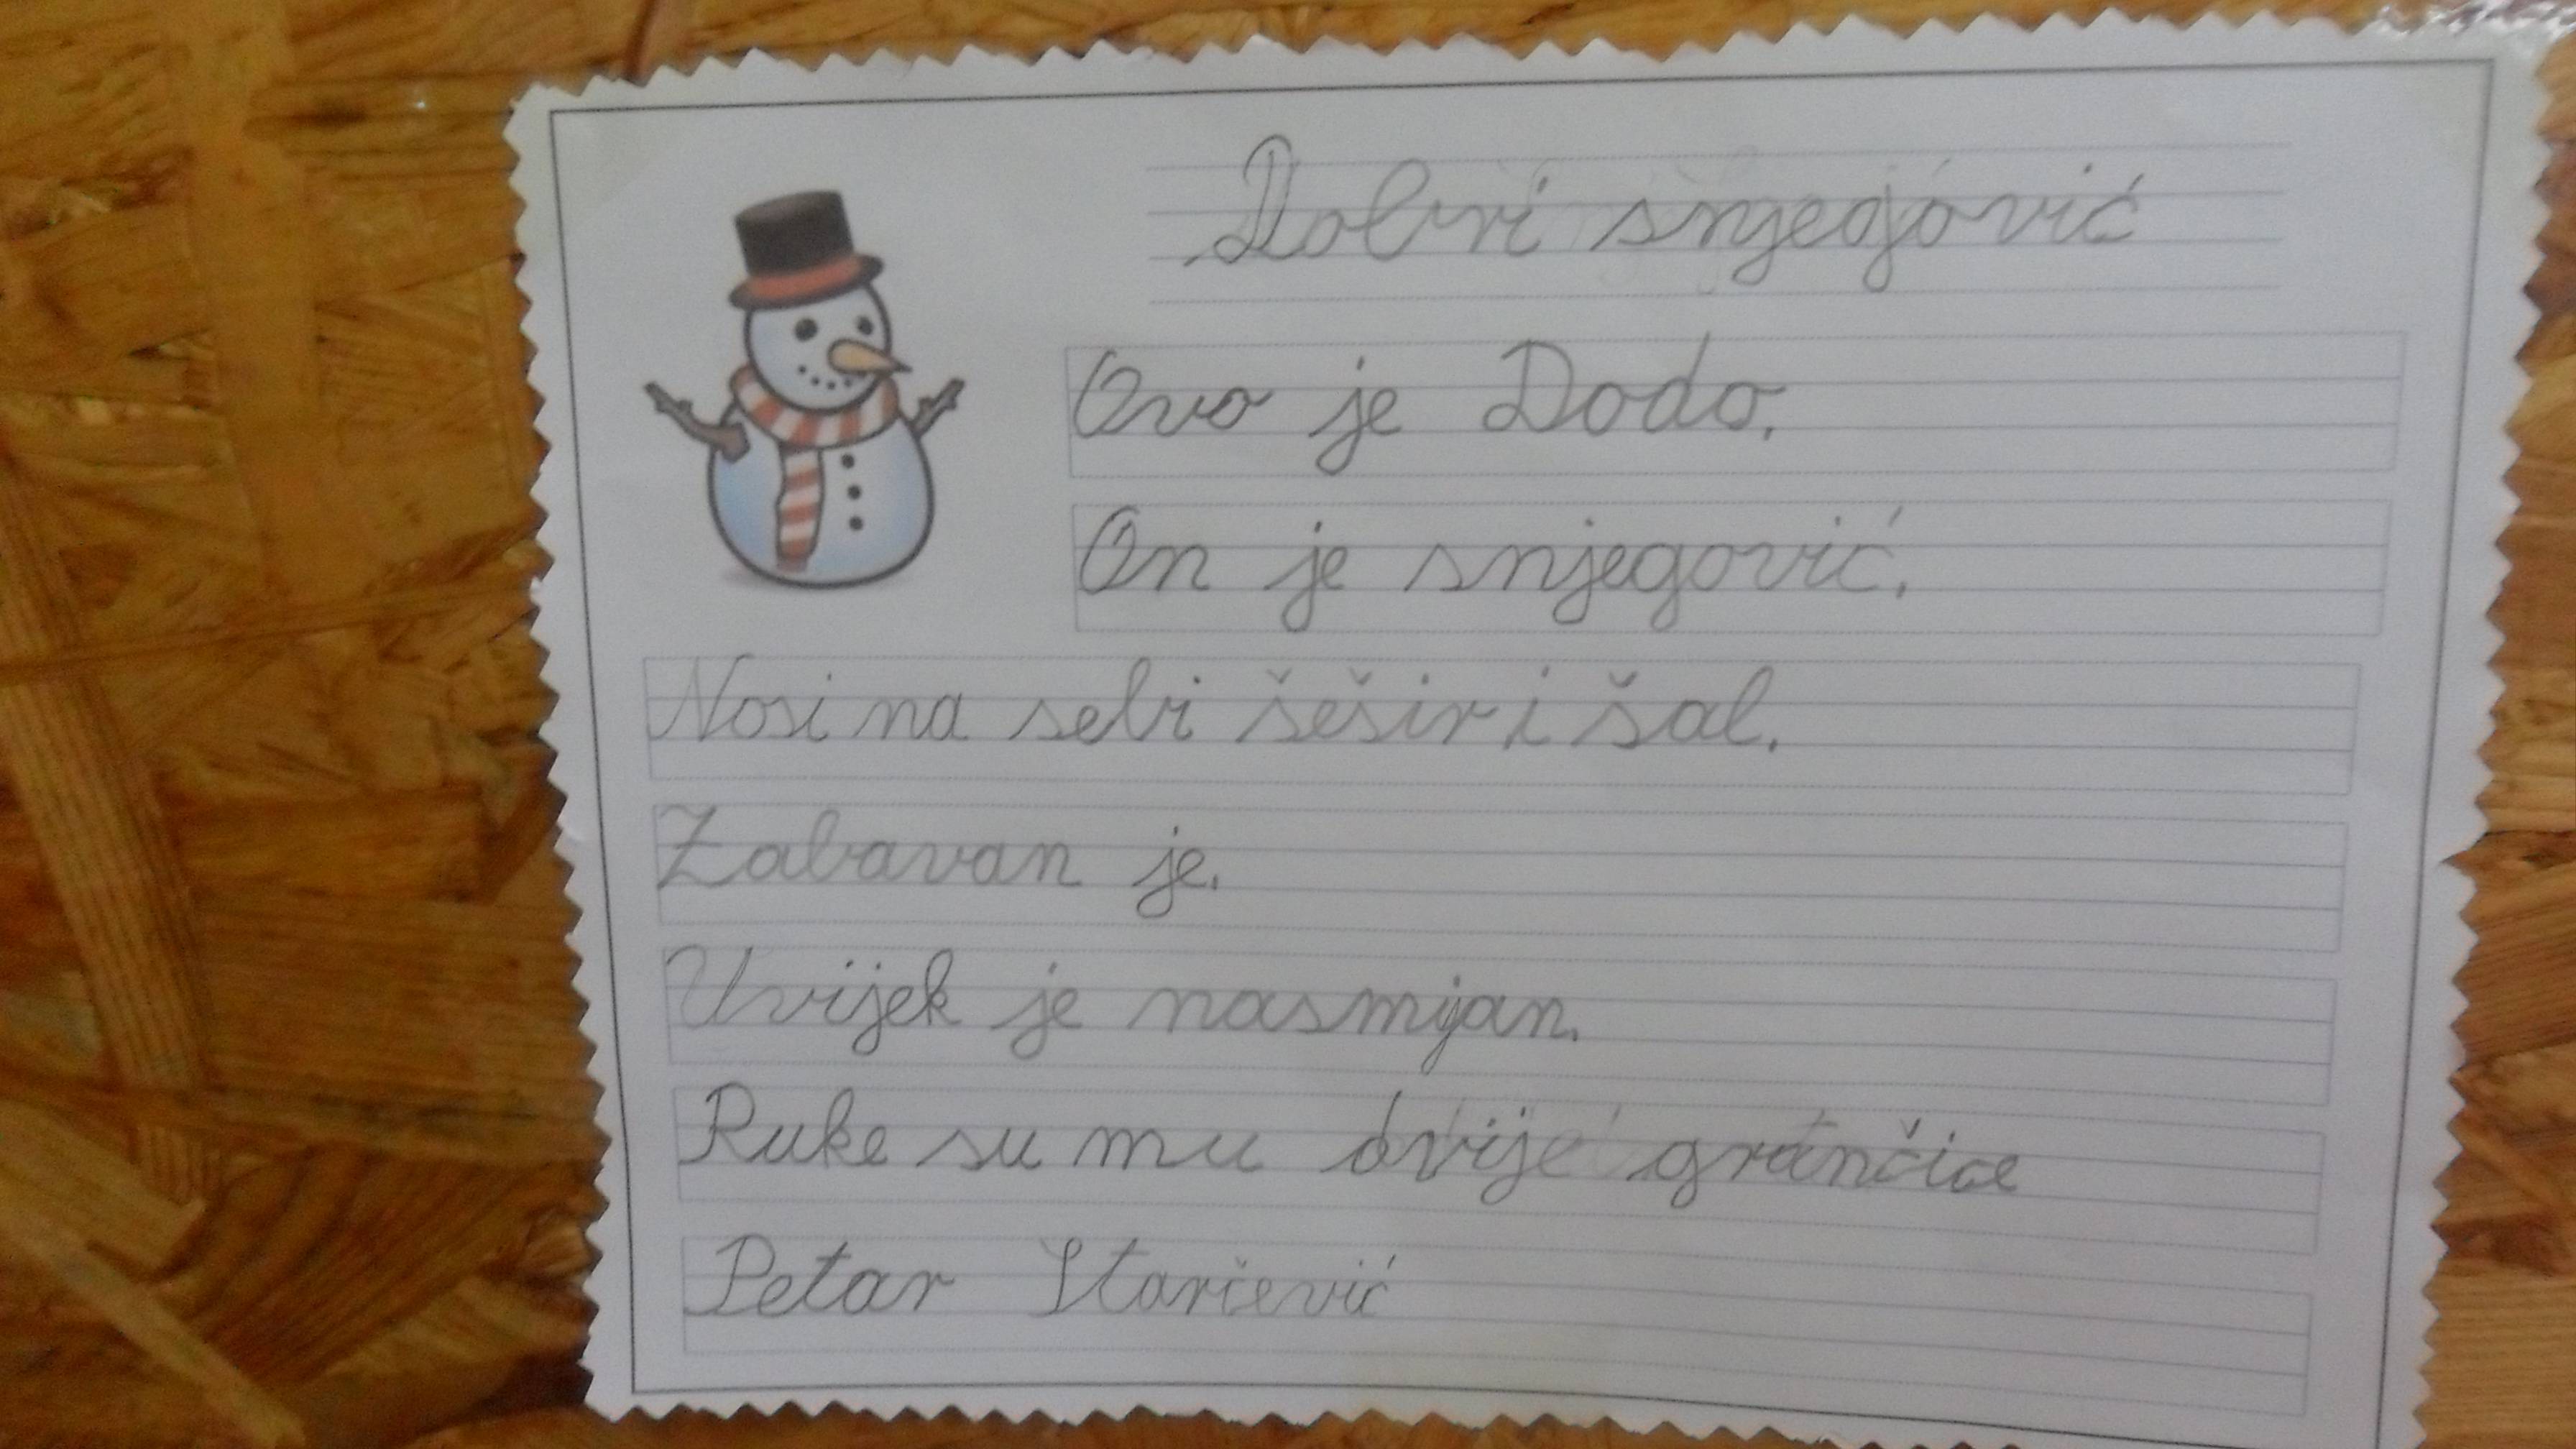 Dobri snjegović
Ovo je Dodo.
On je snjegović.
Nosi na sebi šešir i šal.
Zabavan je.
Uvijek je nasmijan.
Ruke su mu dvije grančice
Petar Starčević